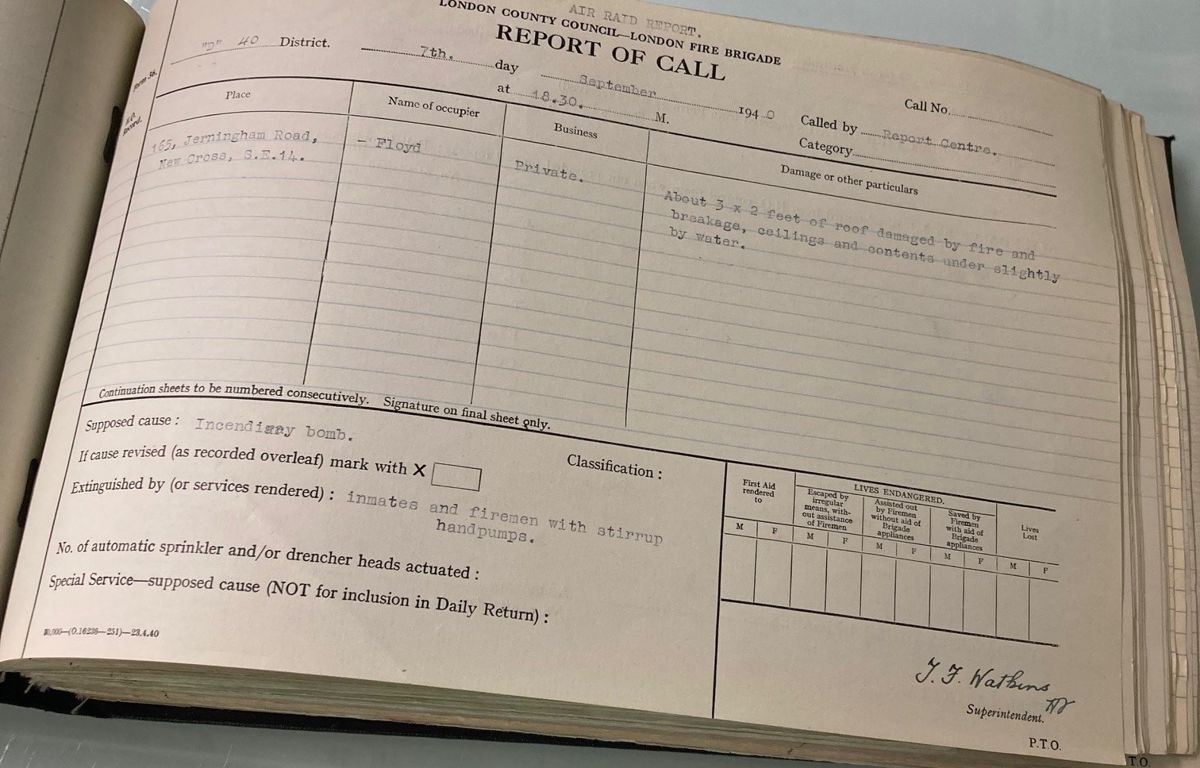 AIR RAID REPORT.
LONDON COUNTY COUNCIL—LONDON FIRE BRIGADE
REPORT OF CALL
"D" 40 District.
7th. day September 1940
at 18.30. M.
Call No.
Called by Report Centre.
Category
Form 5B.
H.Q. Record.
Place
Name of occupier
Business
Damage or other particulars
165, Jerningham Road,
New Cross, S.E.14.
- Floyd
Private.
About 3 x 2 feet of roof damaged by fire and
breakage, ceilings and contents under slightly
by water.
Continuation sheets to be numbered consecutively. Signature on final sheet only.
Supposed cause : Incendiary bomb.
If cause revised (as recorded overleaf) mark with X
Classification :
Extinguished by (or services rendered) : inmates and firemen with stirrup
handpumps.
No. of automatic sprinkler and/or drencher heads actuated :
Special Service—supposed cause (NOT for inclusion in Daily Return) :
First Aid
rendered
to
LIVES ENDANGERED.
Escaped by
irregular
means, with-
out assistance
of Firemen
Assisted out
by Firemen
without aid of
Brigade
appliances
Saved by
Firemen
with aid of
Brigade
appliances
Lives
Lost
M F M F M F M F M F
(O.16236—251)—23.4.40
T. F. Watkins
Superintendent.
P.T.O.
T.O.